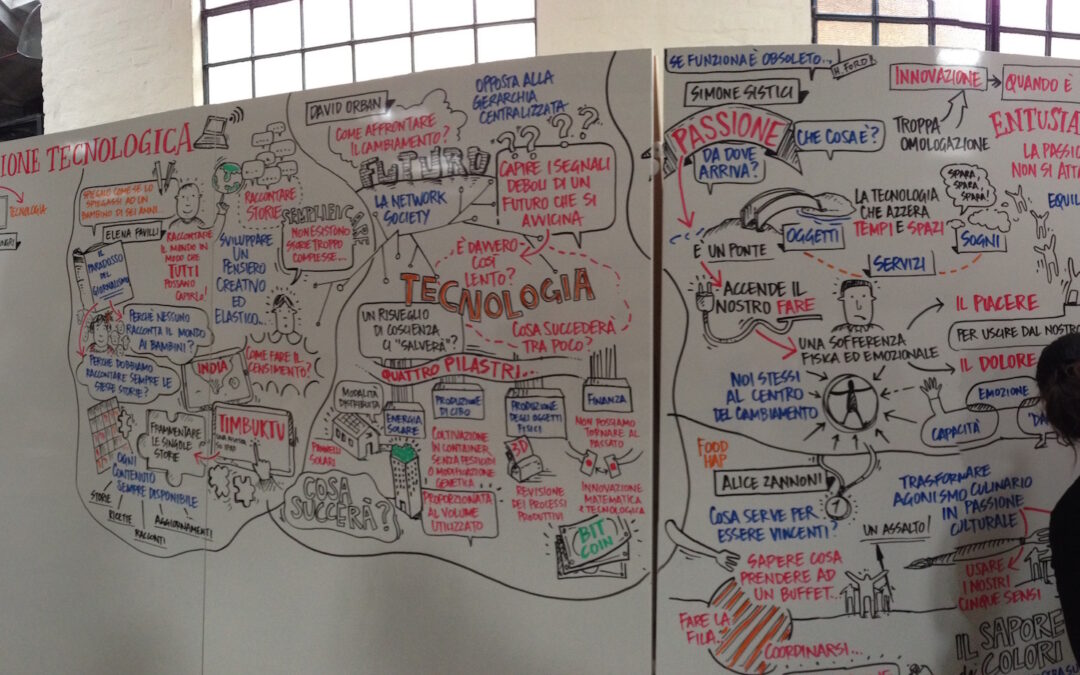 IONE TECNOLOGICA
TECNOLOGIA
SPIEGALO COME SE LO
SPIEGASSI AD UN
BAMBINO DI SEI ANNI...
ELENA FAVILLI
IL
PARADOSSO
DEL
GIORNALISMO
RACCONTARE
IL MONDO IN
MODO CHE
TUTTI
POSSANO
CAPIRLO!
PERCHÉ NESSUNO
RACCONTA IL MONDO
AI BAMBINI?
PERCHÉ DOBBIAMO
RACCONTARE SEMPRE LE
STESSE STORIE?
RACCONTARE
STORIE
SEMPLIFICARE
NON ESISTONO
STORIE TROPPO
COMPLESSE...
SVILUPPARE
UN
PENSIERO
CREATIVO
ED
ELASTICO...
INDIA
COME FARE IL
CENSIMENTO?
TIMBUKTU
FRAMMENTARE
LE SINGOLE
STORIE
OGNI
CONTENUTO
SEMPRE DISPONIBILE
STORIE
RICETTE
RACCONTI
AGGIORNAMENTI
DAVID ORBAN
COME AFFRONTARE
IL CAMBIAMENTO?
OPPOSTA ALLA
GERARCHIA
CENTRALIZZATA
FUTURO
LA NETWORK
SOCIETY
????
CAPIRE I SEGNALI
DEBOLI DI UN
FUTURO CHE SI
AVVICINA
È DAVVERO
COSÌ
LENTO?
TECNOLOGIA
UN RISVEGLIO
DI COSCIENZA
CI "SALVERÀ"?
COSA SUCCEDERÀ
TRA POCO?
QUATTRO PILASTRI...
MODALITÀ
DISTRIBUITA
PANNELLI
SOLARI
ENERGIA
SOLARE
PRODUZIONE
DI CIBO
COLTIVAZIONE
IN CONTAINER,
SENZA PESTICIDI
O MODIFICAZIONE
GENETICA
PROPORZIONATA
AL VOLUME
UTILIZZATO
PRODUZIONE
DEGLI OGGETTI
FISICI
3D
REVISIONE
DEI PROCESSI
PRODUTTIVI
FINANZA
NON POSSIAMO
TORNARE AL
PASSATO
INNOVAZIONE
MATEMATICA
E TECNOLOGICA
BIT
COIN
COSA
SUCCERÀ?
SE FUNZIONA È OBSOLETO...
H. FORD
SIMONE SISTICI
PASSIONE
CHE COSA È?
DA DOVE
ARRIVA?
INNOVAZIONE
QUANDO È
TROPPA
OMOLOGAZIONE
ENTUSIA
LA PASSIO
NON SI ATTA
EQUIL
SPARA,
SPARA,
SPARA!
LA TECNOLOGIA
CHE AZZERA
TEMPI E SPAZI
È UN PONTE
OGGETTI
SERVIZI
SOGNI
ACCENDE IL
NOSTRO FARE
UNA SOFFERENZA
FISICA ED EMOZIONALE
IL PIACERE
PER USCIRE DAL NOSTRO
IL DOLORE
NOI STESSI
AL CENTRO
DEL CAMBIAMENTO
EMOZIONE
CAPACITÀ
FOOD
HAP
ALICE ZANNONI
COSA SERVE PER
ESSERE VINCENTI?
UN ASSALTO!
TRASFORMARE
AGONISMO CULINARIO
IN PASSIONE
CULTURALE
SAPERE COSA
PRENDERE AD
UN BUFFET...
FARE LA
FILA...
COORDINARSI...
USARE
I NOSTRI
CINQUE SENSI
IL SAPORE
dei COLORI